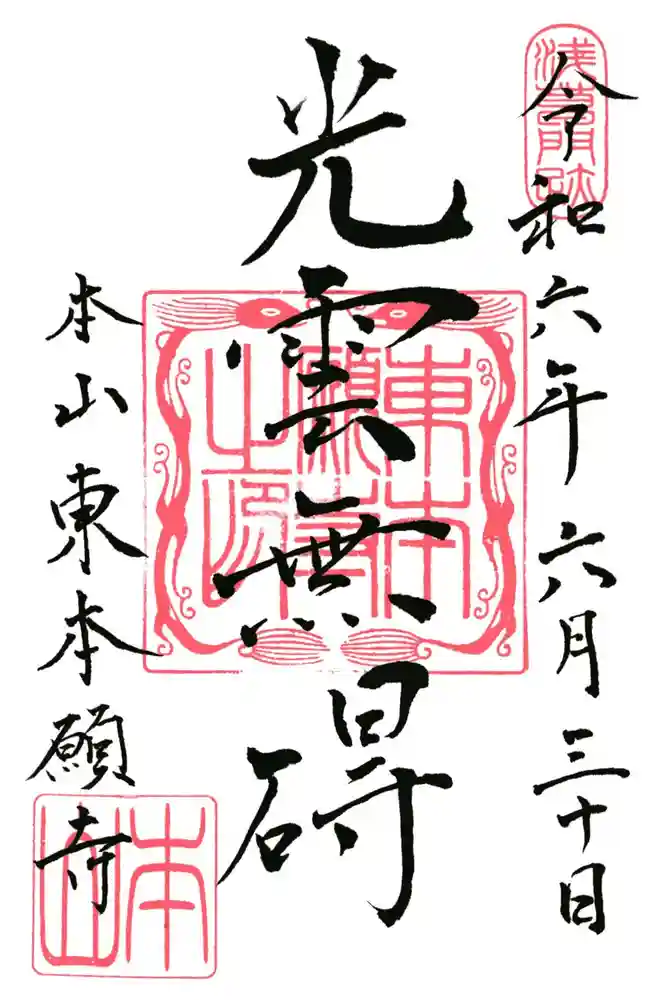 令和六年六月三十日
浅草門跡
光雲無碍
東本願寺之印
本山東本願寺
本山